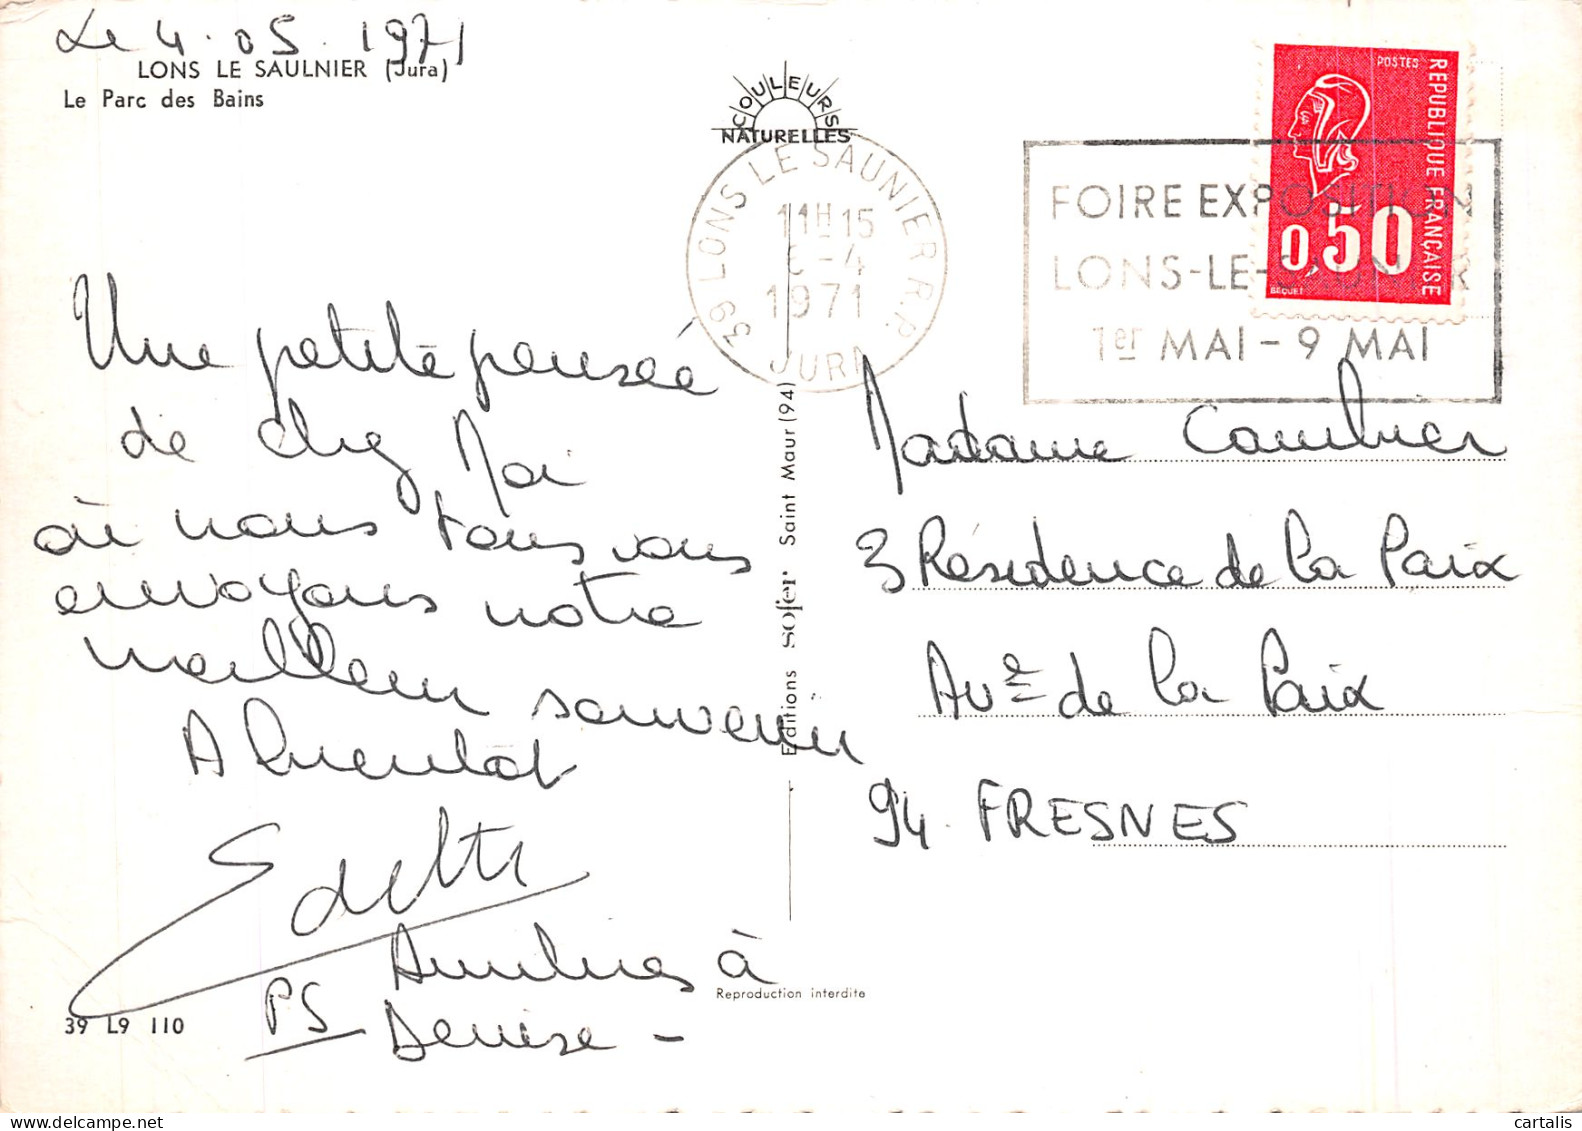 Le 4.05.1971
LONS LE SAULNIER (Jura)
Le Parc des Bains
COULEURS
NATURELLES
39 LONS LE SAUNIER R.P.
11H15
6-4
1971
JURA
FOIRE EXPOSITION
LONS-LE-SAUNIER
1er MAI - 9 MAI
POSTES
REPUBLIQUE FRANÇAISE
0,50
BEQUET
Une petite pensée
de chez Moi
où nous tous vous
envoyons notre
meilleur souvenir
A bientôt
Edith
PS Amitiés à
Denise -
39 L9 110
Editions sofer Saint Maur (94)
Reproduction interdite
Madame
3 Résidence de la Paix
Ave de la Paix
94. FRESNES
cartalis